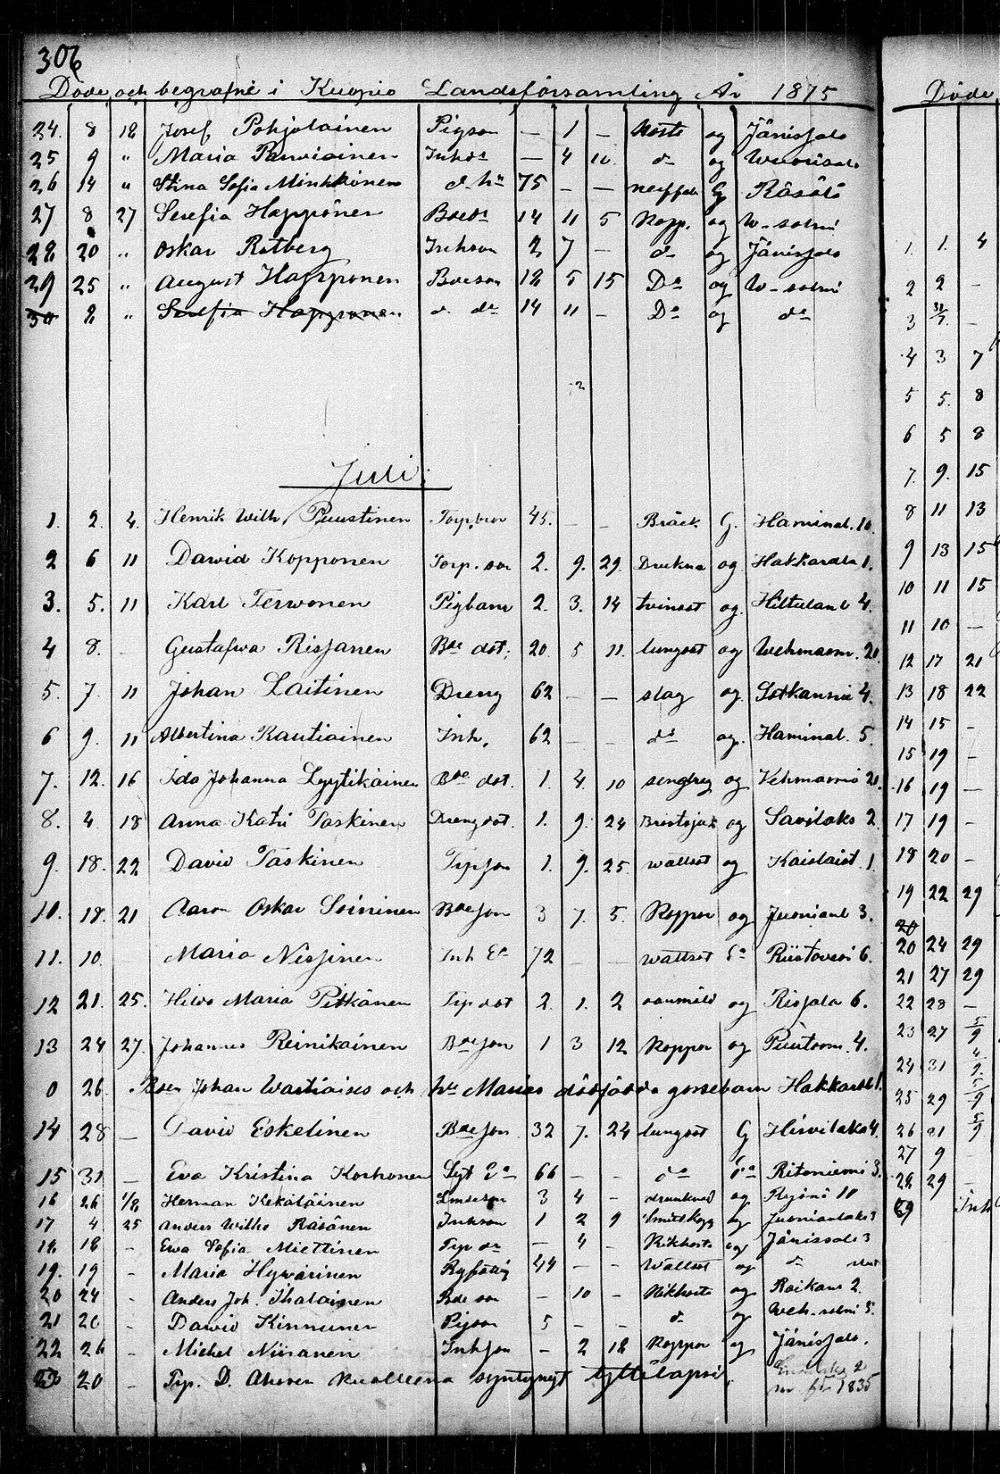 306
Döde och begrafne i Kuopio Landsförsamling År 1875
24. 8 18 Josef Pohjolainen Pigson — 1 — Hosta og Jänissalo
25 9 " Maria Parviainen Inhdr — 4 10. do og
26 14 " Stina Sofia Minkkinen d. hu 75 — — G Räsälä
27 8 27 Serefia Happonen Boedr 14 11 5 Kopp. og W-salmi
28 20 " Oskar Rotberg Inhson 2 7 — do og Jänissalo
29 25 " August Happonen Boeson 12 5 15 Do og W-salmi
30 8 " Serefia Happonen d. do 14 11 — Do og do
Juli.
1. 2. 4. Henrik Wilh. Puustinen 45. — — Bräck G. Haminal. 10.
2 6 11 Dawid Kopponen Torp. son 2. 9. 29. Drukna og Hakkarala 1.
3. 5. 11 Karl Terwonen Pigbarn 2. 3. 14 tvinsot og Hiltulanl 4.
4 8. — Gustafwa Risjanen Boe dot. 20. 5 11. lungsot og Wehmasm. 20.
5. 7. 11 Johan Laitinen Dreng 62 — — slag og Sotkanni 4.
6 9. 11 Albertina Rautiainen Inh. 62 — — do og. Haminal. 5.
7. 12. 16 Ida Johanna Lyytikäinen Boe dot. 1. 4. 10 og Vehmasmä 21.
8. 4. 18 Anna Katri Taskinen Drengdot. 1. 9. 24 og Savilaks 2.
9. 18. 22 David Taskinen Tipson 1. 9. 25. wattsot og Kaislast 1.
10. 18. 21 Aaron Oskar Soininen Boeson 3 7. 5. Koppor og Juonianl 3.
11. 10. Maria Nissinen Inh Ea 72 — — wattsot Ea Riistavesi 6.
12 21. 25. Hilda Maria Pitkänen Tip dot 2. 1. 2 og Risjala 6.
13 24 27. Johannes Reinikainen Boeson 1 3 12 Koppor og 4.
0 26. Boen Johan Wartiaises och hu Marias dödfödda gossebarn Hakkarala 1.
14 28 — David Eskelinen Boeson 32 7. 24 lungsot G Hirvilaks 4.
15 31 — Eva Kristina Korhonen Syt Ea 66 — — do Ea Ritoniemi 3.
16 26 1/8 Herman Kekäläinen 3 4 — drunknad og 10
17 4 25 Anders Wilho Räsänen Inhson 1 2 9 og Juonianlaks 3
18 18 — Ewa Sofia Miettinen Tip dr — 4 — Kikhosta og Jänissalo 3
19. 19 — Maria Hyvärinen 44 — — Wattsot og do
20 24 — Anders Joh. Ihalainen Boe son — 10 — Kikhosta og Roikans 2.
21 20 — Dawid Kinnunen Pigson 5 — — do og Weh-salmi 5.
22 26 — Michel Niiranen Inhson — 2 18 Koppor og Jänissalo.
23 20 — Tip. D. Ahosen kuolleena syntynyt tyttölapsi
1835
Döde
1. 1. 4
2 2 —
3 31/7. —
4 3 7
5 5. 8
6 5 8
7. 9. 15
8 11 13
9 13 15
10 11 15
11 10 —
12 17 21
13 18 22
14 15 —
15 19 —
16 19 —
17 19 —
18 20 —
19 22 29
20
20 24 29
21 27 29
22 28 —
23 27 5/9
24 31
25 29 5/9
26 21 5/9
27 9 —
28 29 —
29 Inh